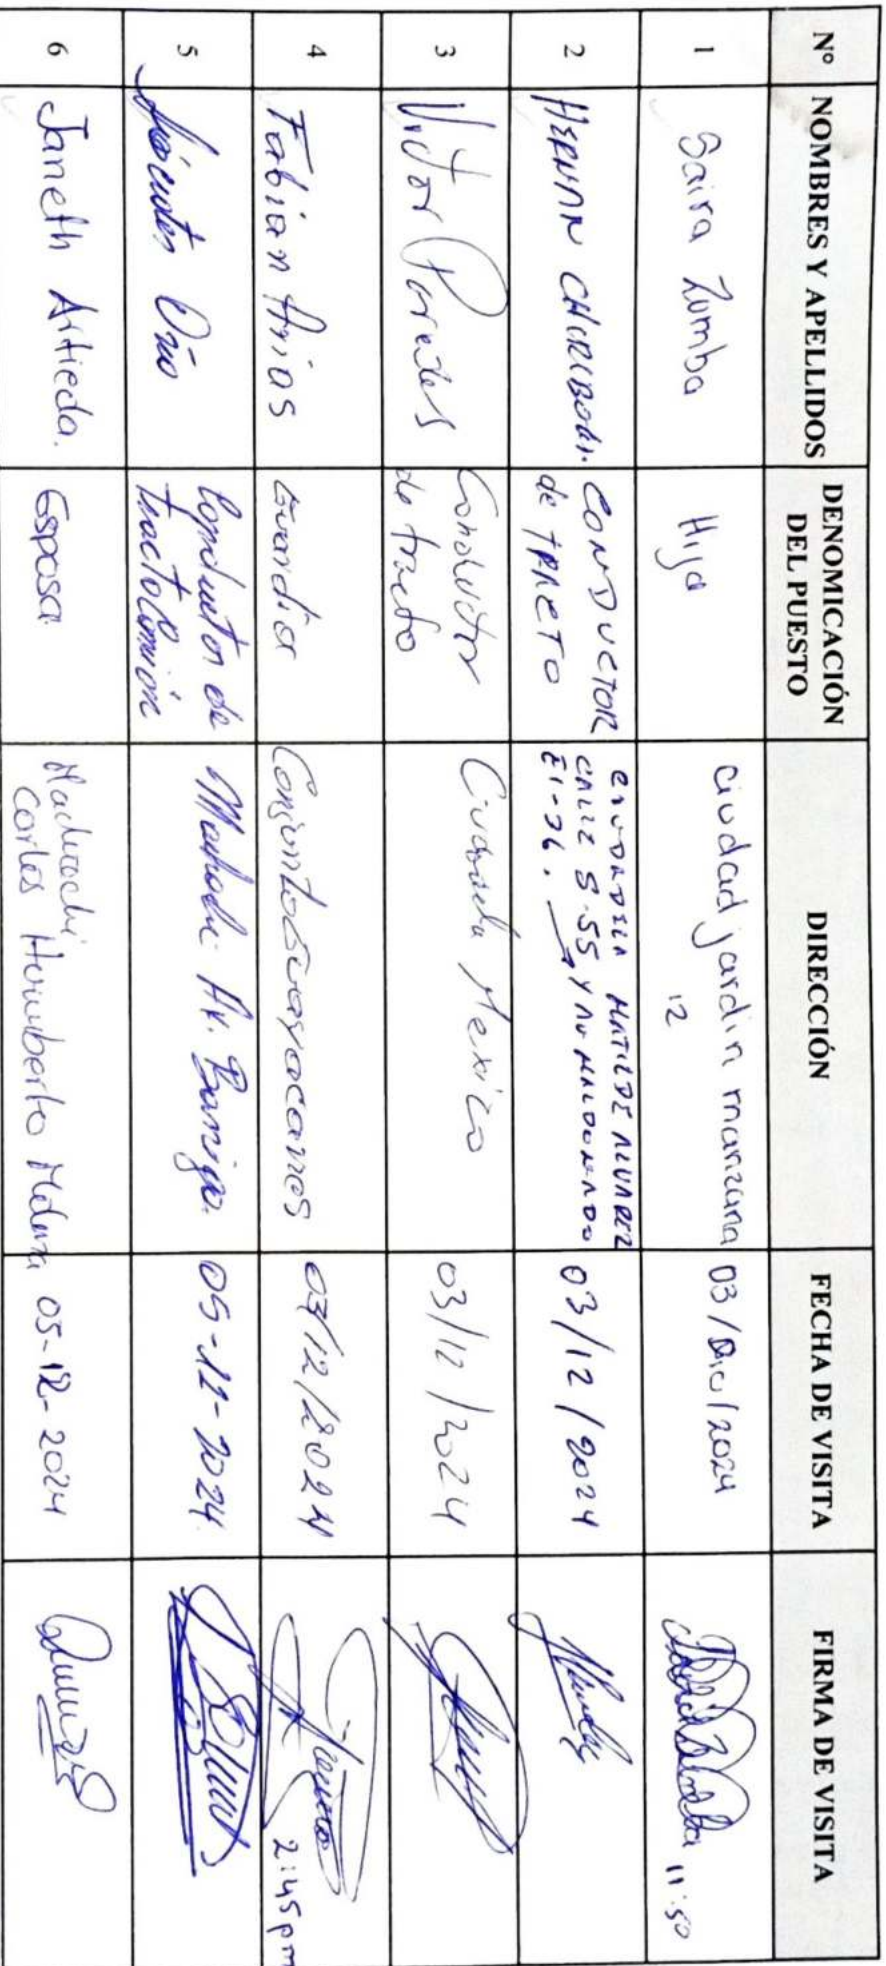 Nº NOMBRES Y APELLIDOS DENOMICACIÓN DEL PUESTO DIRECCIÓN FECHA DE VISITA FIRMA DE VISITA
1 Saira Zumba Hija Ciudad jardin manzana 12 03/Dic/2024 11:50
2 HERNAN CHIRIBOGA. CONDUCTOR de TRACTO CIUDADELA MATILDE ALVAREZ CALLE S-55 Y AV MALDONADO E1-76. 03/12/2024
3 Victor Paredes Conductor de tracto Ciudadela Mexico 03/12/2024
4 Fabian Arias Guardia Conjunto Guayacanes 03/12/2024 2:45pm
5 Conductor de tractocamión Machachi Av. 05-12-2024.
6 Janeth Artieda. Esposa Machachi Carlos Humberto 05-12-2024